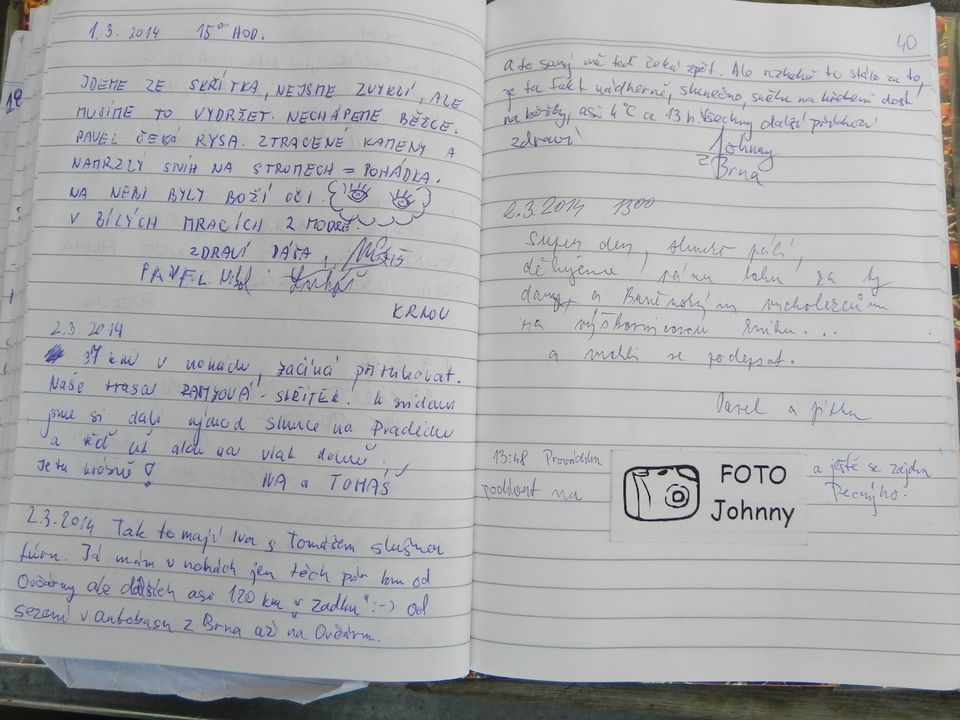 1.3. 2014 15°° HOD.
JDEME ZE SKŘÍTKA, NEJSME ZVYKLÍ, ALE
MUSÍME TO VYDRŽET. NECHÁPEME BĚŽCE.
PAVEL ČEKÁ RYSA. ZTRACENÉ KAMENY A
NAMRZLÝ SNÍH NA STROMECH = POHÁDKA.
NA NEBI BYLY BOŽÍ OČI
V BÍLÝCH MRACÍCH Z MODRÉ.
ZDRAVÍ DÁŠA,
PAVEL
KRNOV
2.3. 2014
37 km v nohách, začíná přituhovat.
Naše trasa ZAMYOVÁ - SKŘÍTEK. K snídani
jsme si dali východ slunce na Pradědu
a teď už na vlak domů,
Je tu krásně!
IVA a TOMÁŠ
2.3.2014 Tak to mají Iva s Tomášem slušnou
túru. Já mám v nohách jen těch pár km od
Ovčárny ale dalších asi 120 km "v zadku" :-) od
sezení v autobusu z Brna až na Ovčárnu.
40
a to samý mě teď čeká zpět. Ale rozhodně to stálo za to,
je tu fakt nádherně, slunečno, sněhu na hřebeni dost
na běžky, asi 4°C a 13 h. Všechny další příchozí
zdraví
Johnny
z Brna
2.3.2014 1300
Super den, slunce pálí,
děkujeme pánu bohu za ty
dary, a
na
a mohli se podepsat.
Pavel a Jitka
13:48
podívat na
FOTO
Johnny
a ještě se zajdu